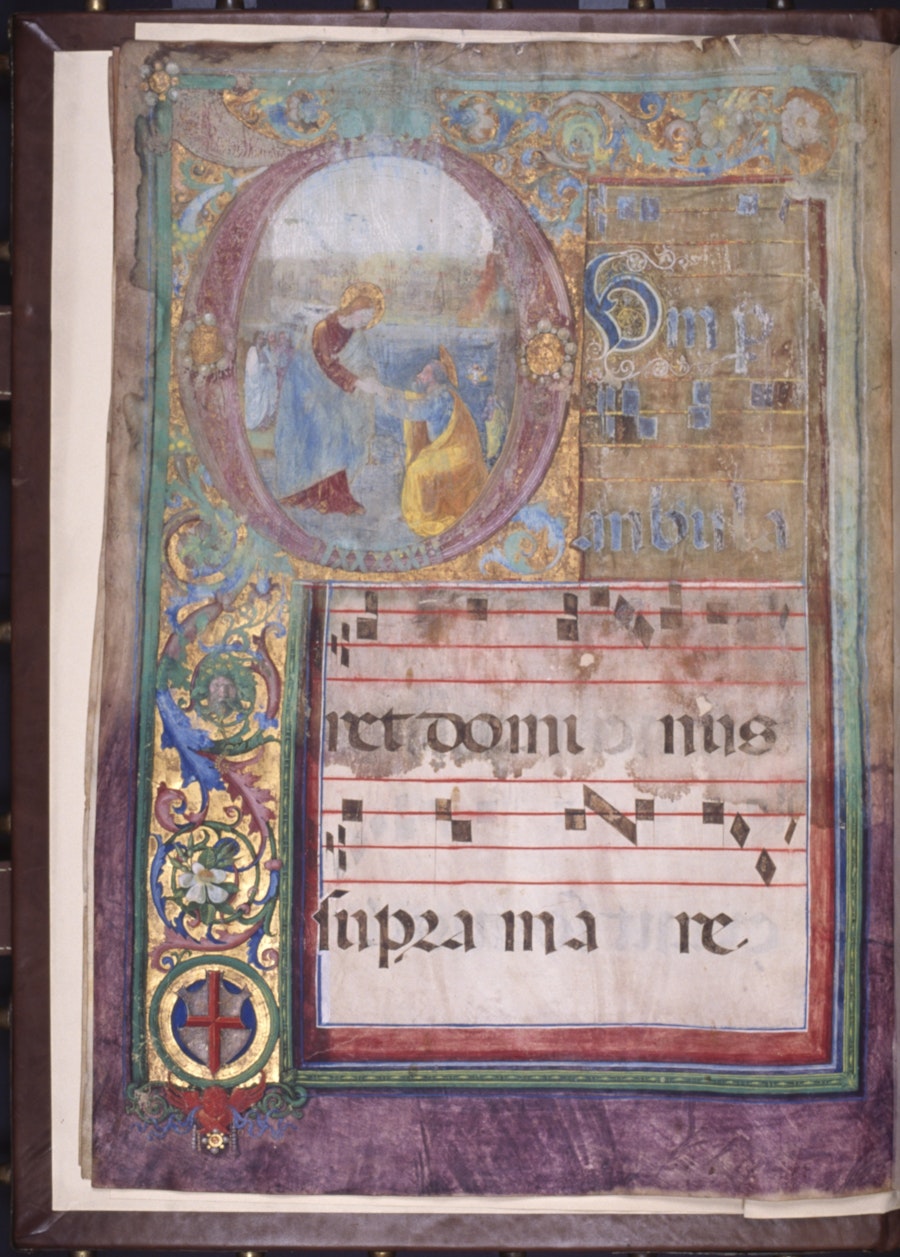 DUm p
ambula
ret domi nus
supra ma re.